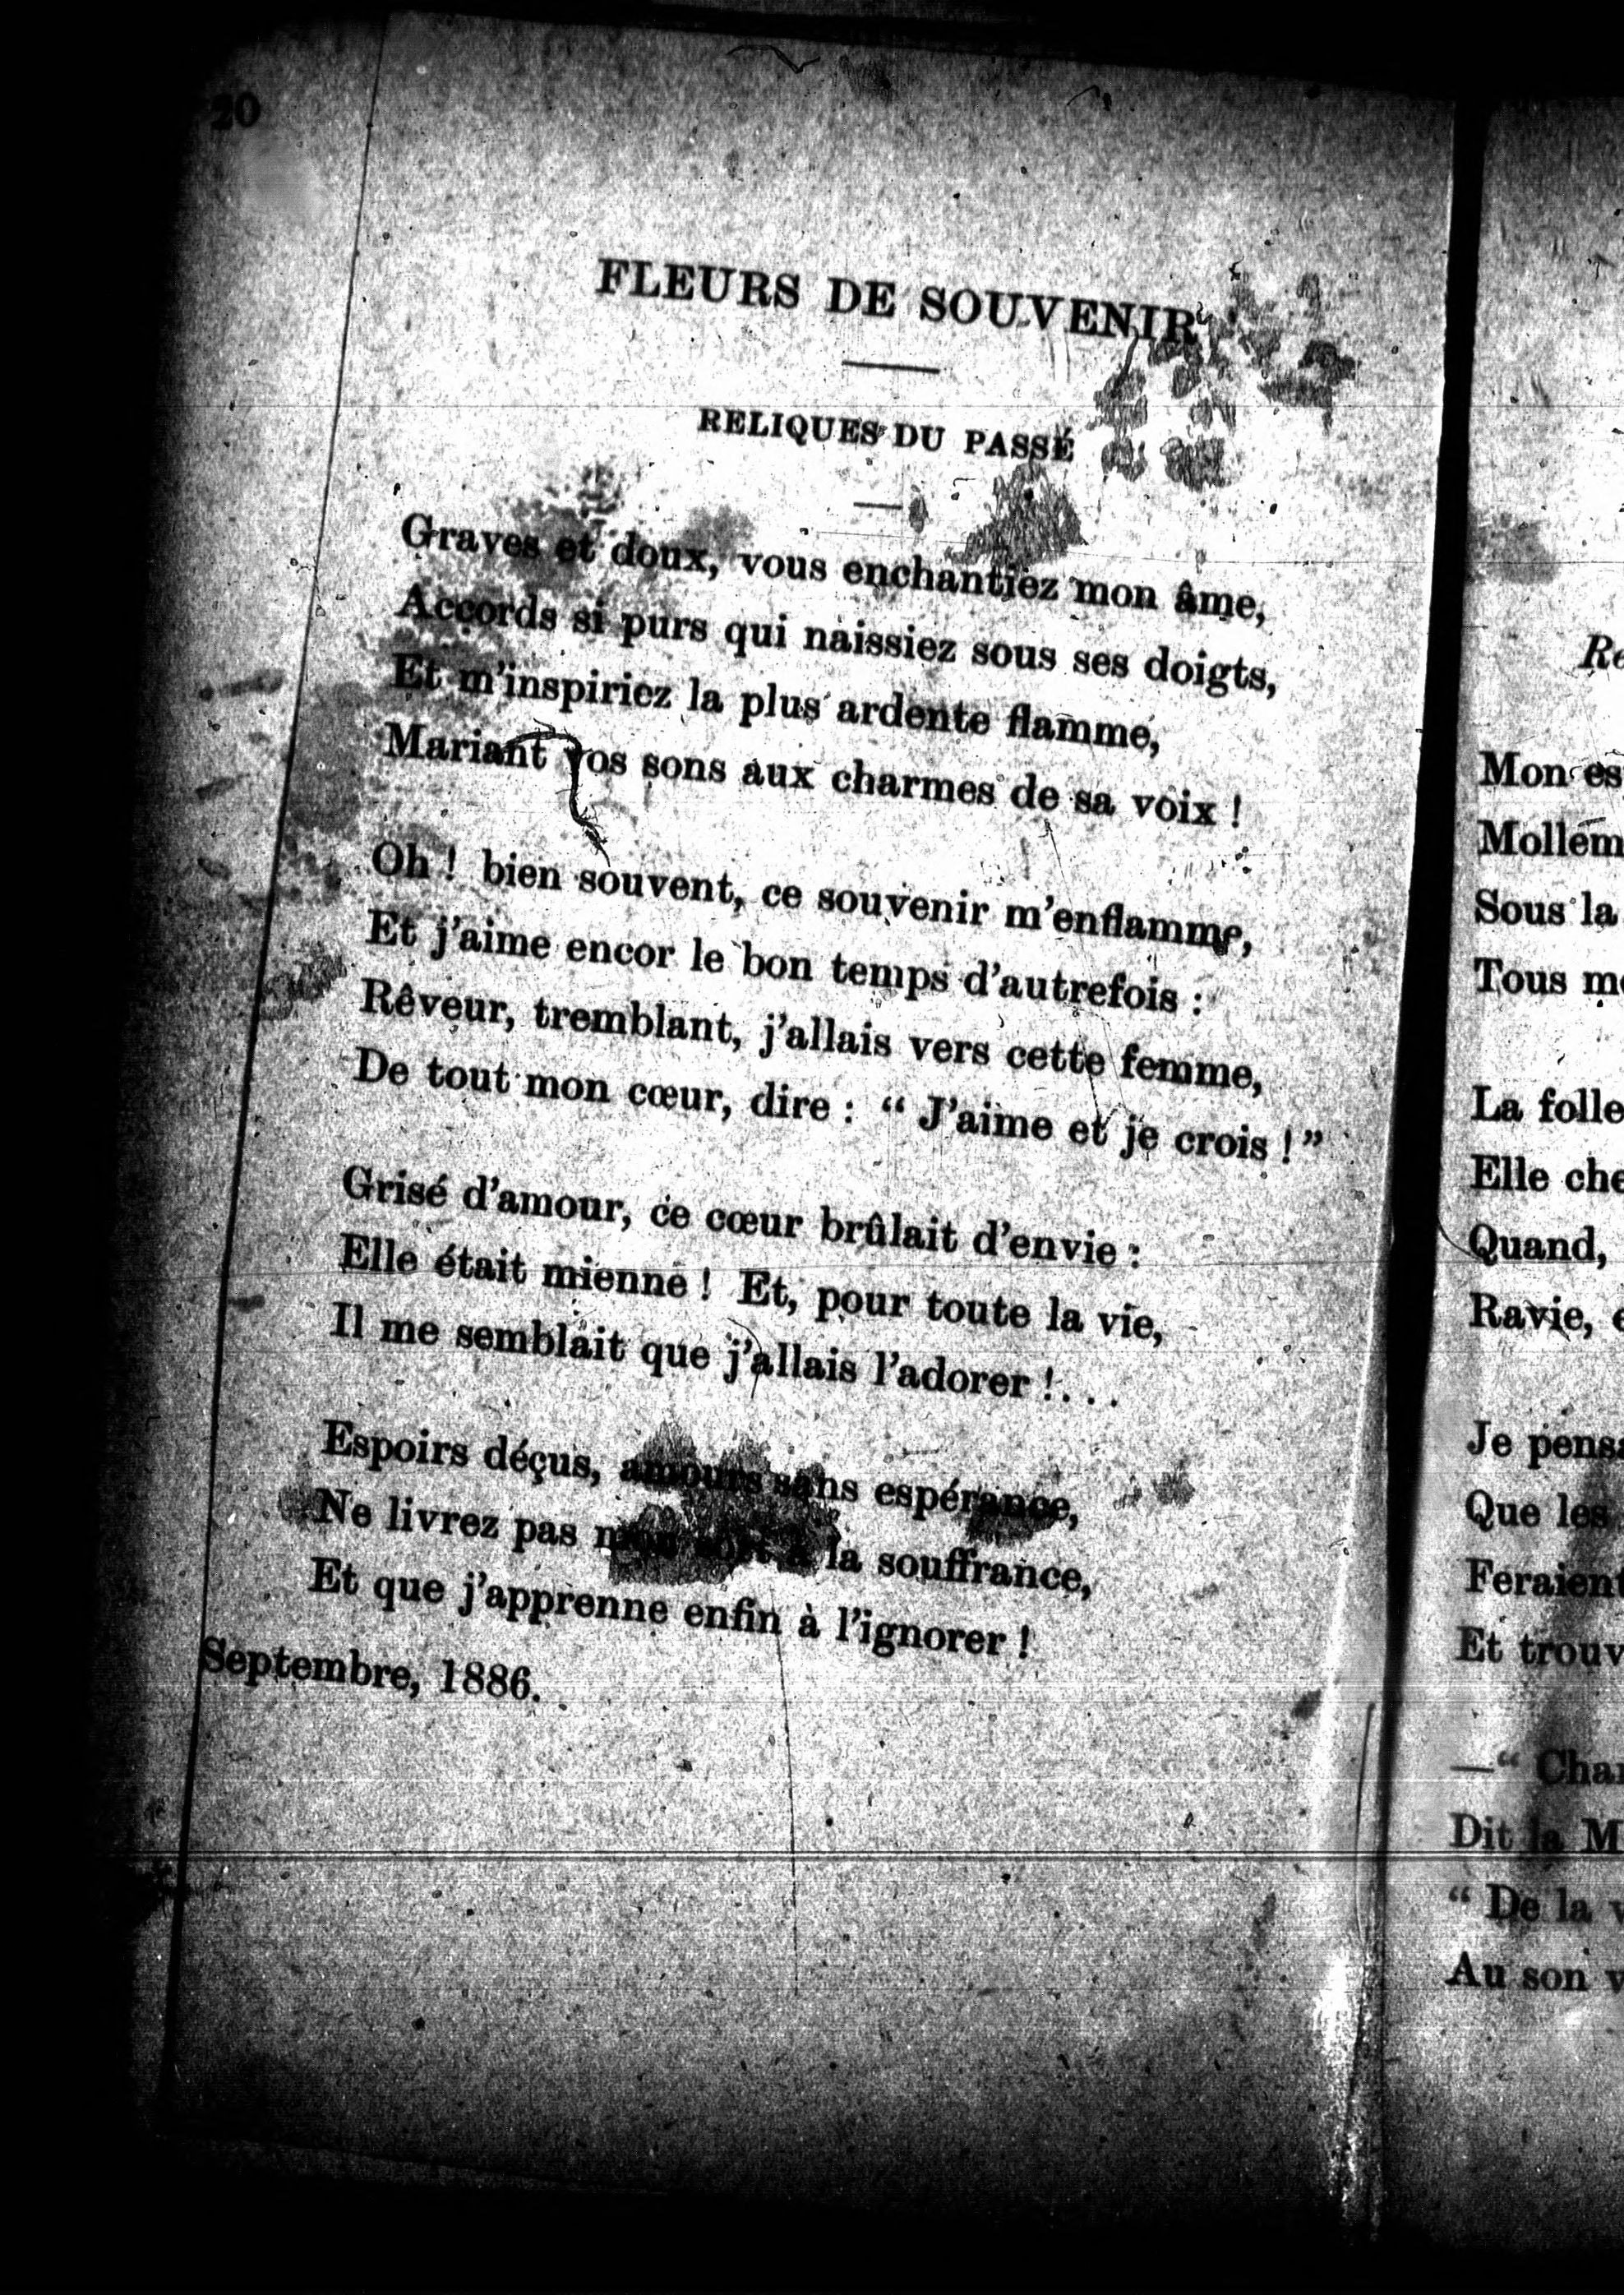 20
FLEURS DE SOUVENIR
RELIQUES DU PASSÉ
Graves et doux, vous enchantiez mon âme,
Accords si purs qui naissiez sous ses doigts,
Et m'inspiriez la plus ardente flamme,
Mariant vos sons aux charmes de sa voix !
Oh ! bien souvent, ce souvenir m'enflamme,
Et j'aime encor le bon temps d'autrefois :
Rêveur, tremblant, j'allais vers cette femme,
De tout mon cœur, dire : “ J'aime et je crois ! ”
Grisé d'amour, ce cœur brûlait d'envie :
Elle était mienne ! Et, pour toute la vie,
Il me semblait que j'allais l'adorer !...
Espoirs déçus, amours sans espérance,
Ne livrez pas mon sort à la souffrance,
Et que j'apprenne enfin à l'ignorer !
Septembre, 1886.
Mon
Sous la
Tous
La folle
Elle
Quand,
Ravie,
Je
Que les
Feraient
Et
—“
Dit la
“ De la
Au son